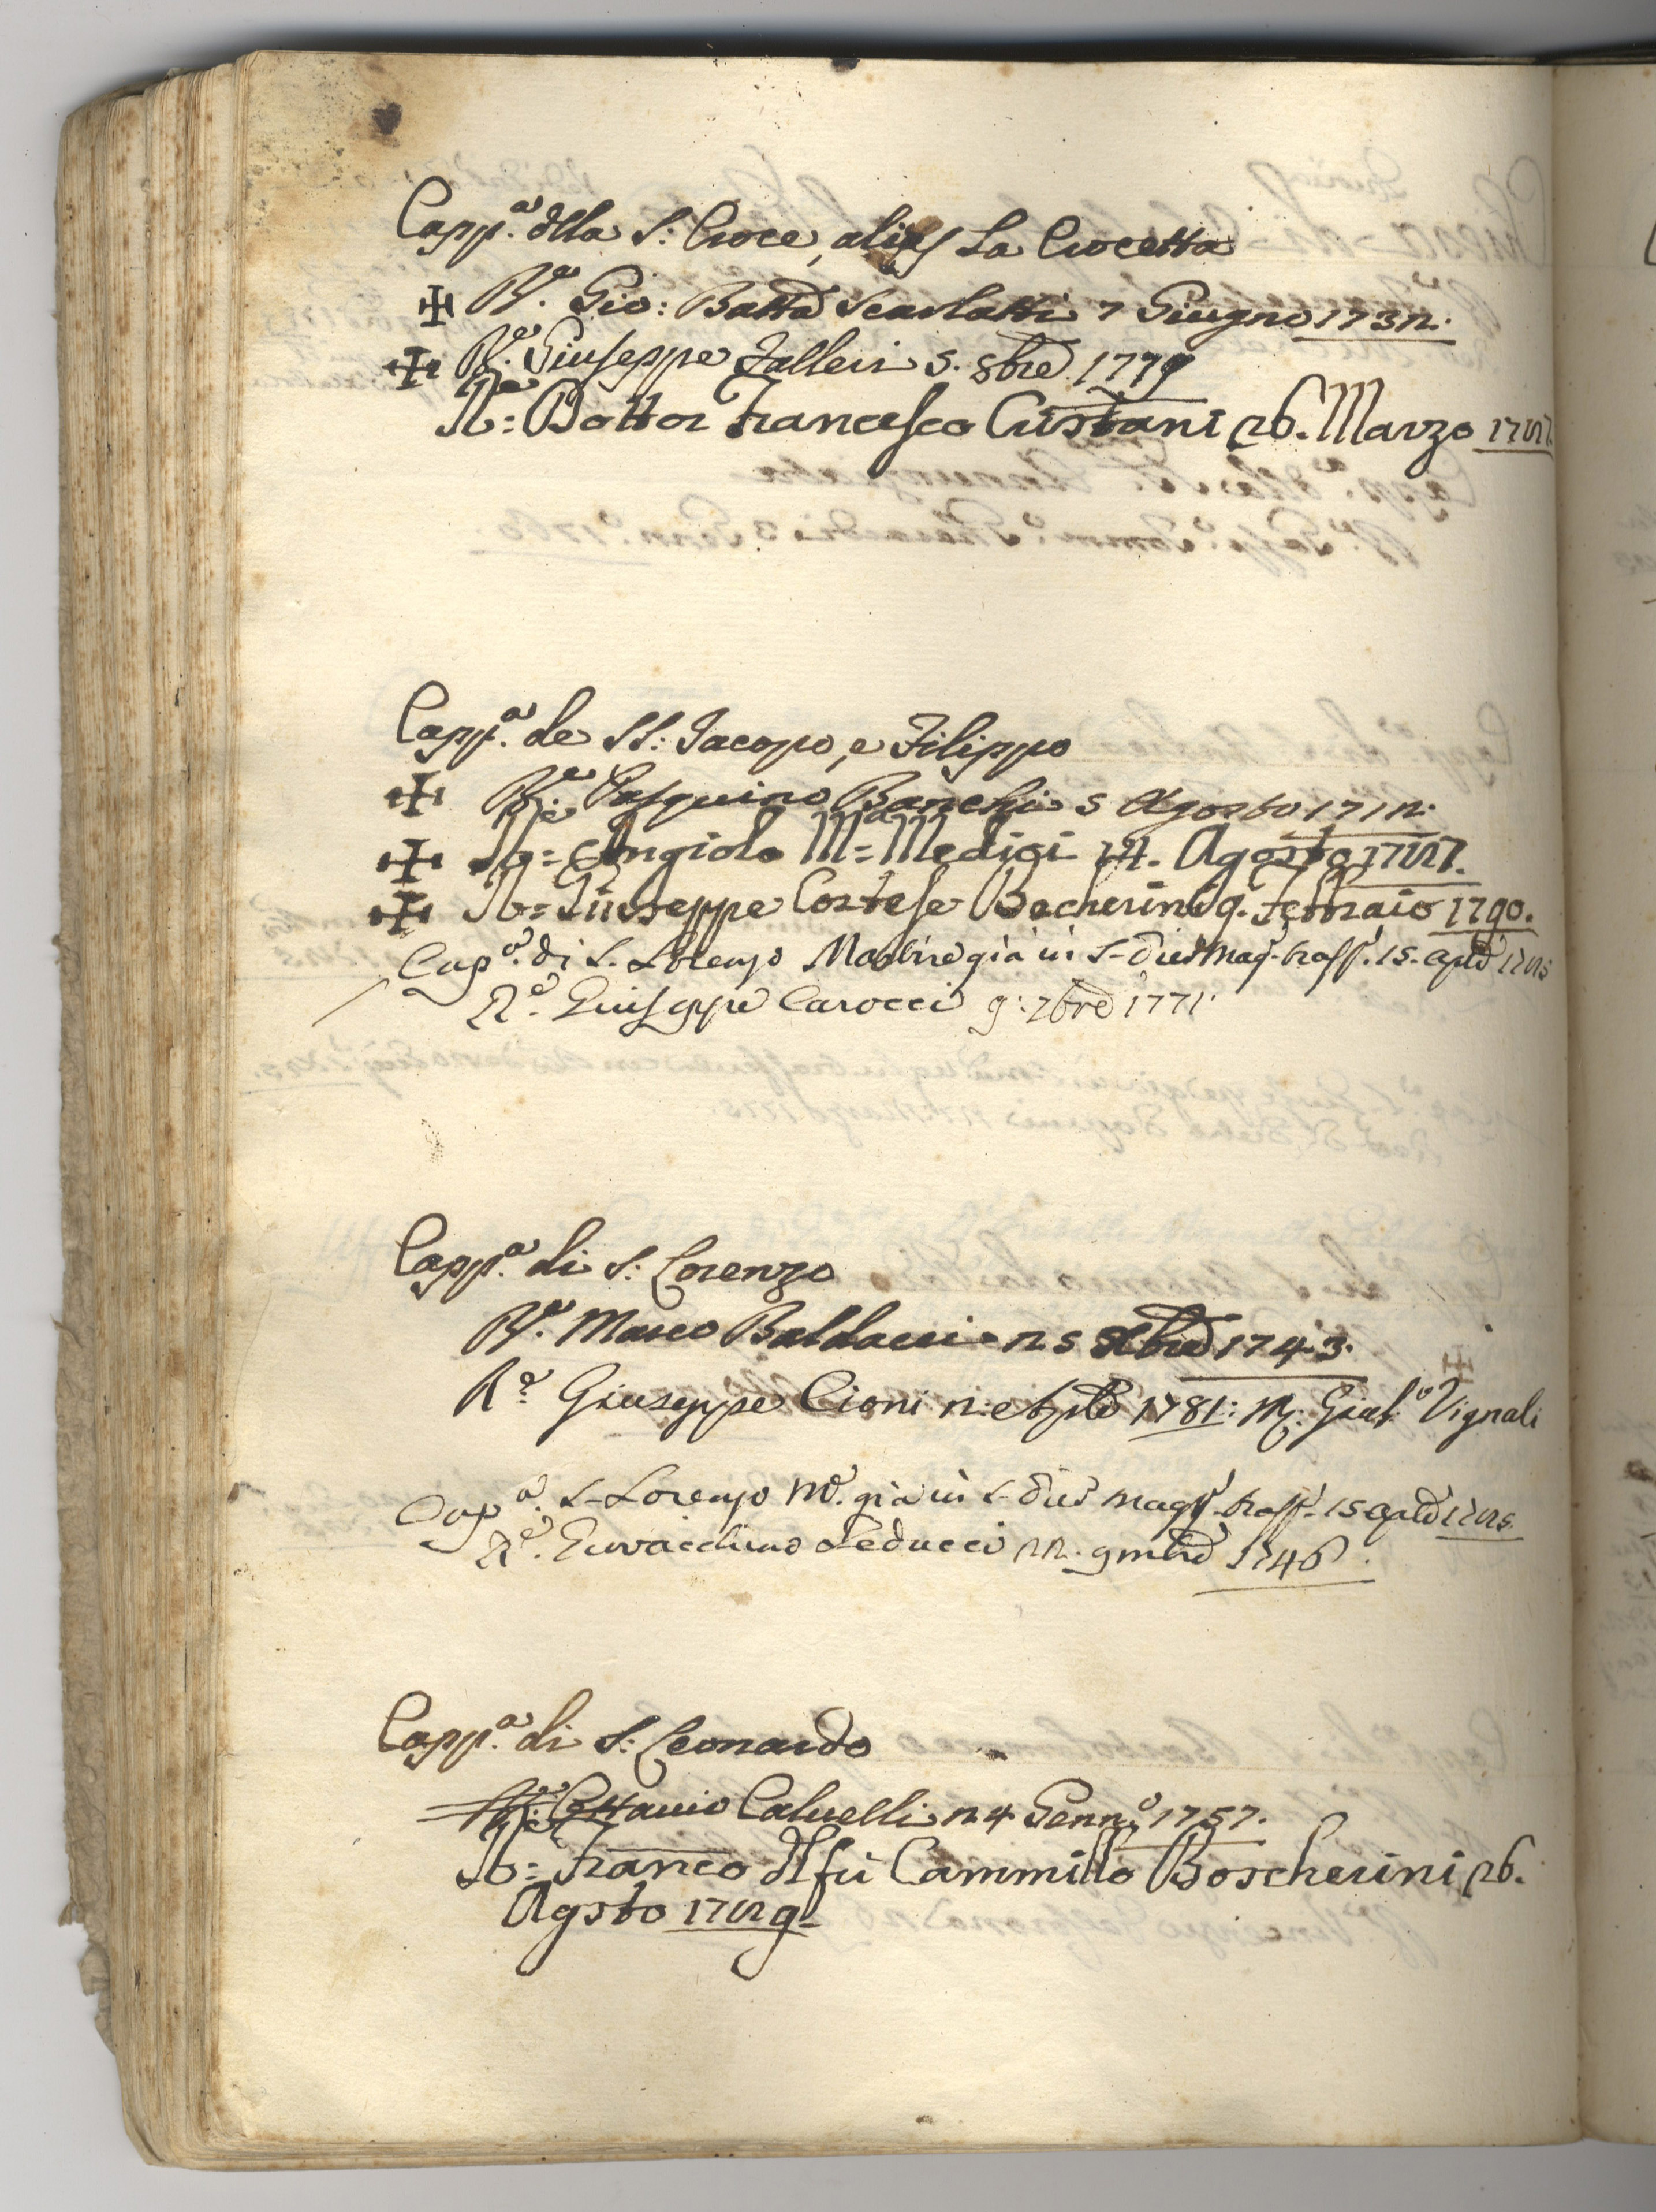 Capp.ª dlla S: Croce, alias La Crocetta
✠ Rᵉ. Gio: Battã Scarlatti 7 Giugno 1732.
✠ Rᵉ. Giuseppe Falleri 5. 8bre 1779
Rᵉ: Dottor Francesco Cristani 26. Marzo 1787.
Capp.ª de SS: Jacopo, e Filippo
✠ Rᵉ Pasquino Banchi 5 Agosto 1712.
✠ Rᵉ= Angiolo Mª= Medici 14. Agosto 1787.
✠ Rᵉ= Giuseppe Cortese Bocherini 9. Febbraio 1790.
Cap.ª di S. Lorenzo Martire già in S. trasf. 15. aple 1785
Rᵉ. Giuseppe Carocci 9: 7bre 1771
Capp.ª di S: Lorenzo
Rᵉ. Marco Baldacci 25 Xbre 1743.
Rᵉ. Giuseppe Cioni 1781: Vignali
✠
Cap.ª. S. Lorenzo Mᵉ. già in S. trasf. 15 aple 1785
Rᵉ. Giovacchino Leducci 22. 9mbre 1746.
Capp.ª di S: Leonardo
Rᵉ. Ottavio Calvelli 24 Genn.º 1757.
Rᵉ= Franco dl fù Cammillo Boscherini 26.
Agsto 1789